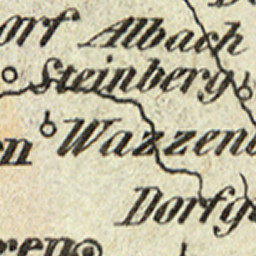 orf Albach
Steinberg
en Wazzenb
Dorfg
ren